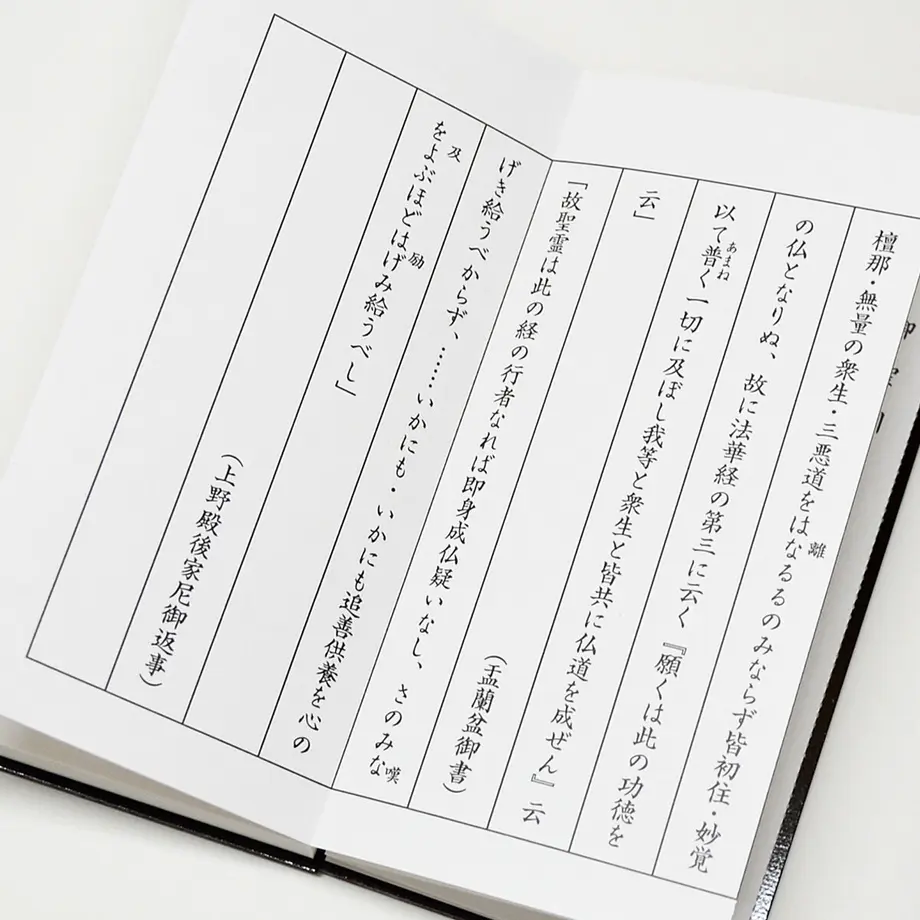 檀那・無量の衆生・三悪道をはなるるのみならず皆初住・妙覚
離
の仏となりぬ、故に法華経の第三に云く『願くは此の功徳を
以て普く一切に及ぼし我等と衆生と皆共に仏道を成ぜん』云
あまね
云」 (盂蘭盆御書)
「故聖霊は此の経の行者なれば即身成仏疑いなし、さのみな
嘆
げき給うべからず、……いかにも・いかにも追善供養を心の
をよぶほどはげみ給うべし」
及
励
(上野殿後家尼御返事)